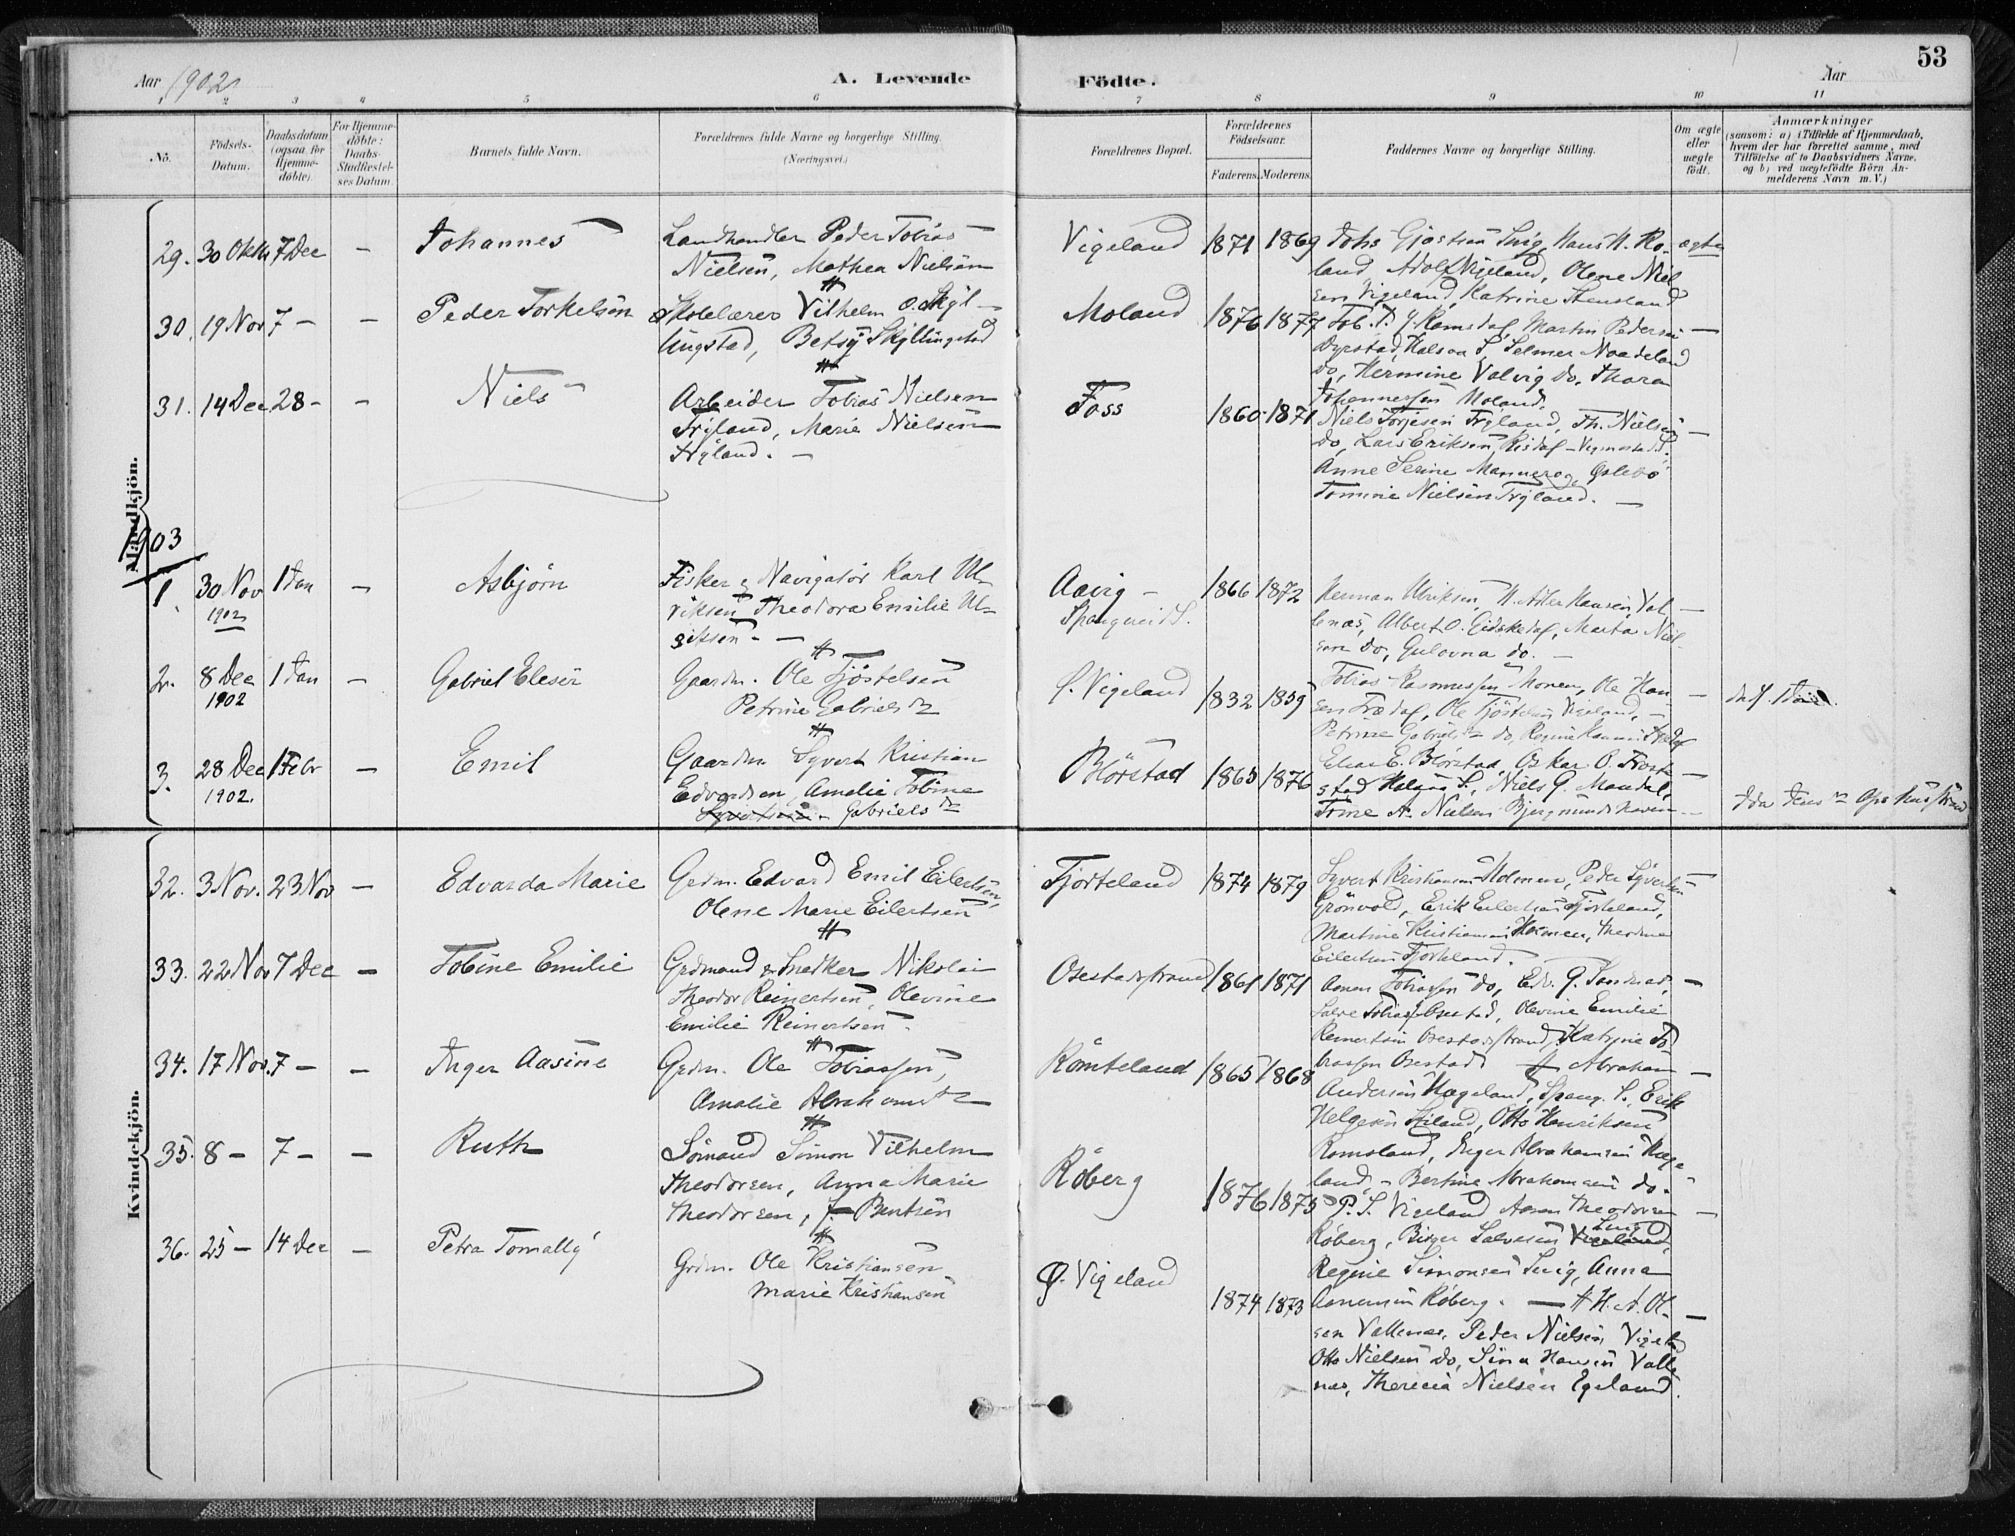 53
Aar 1902
A. Levende
Födte.
Aar
1 2 3 4 5 6 7 8 9 10 11
No.
Födsels-
Datum.
Daabsdatum
(ogsaa for
Hjemme-
döbte).
For Hjemme-
döbte:
Daabs-
Stadfæstel-
ses Datum.
Barnets fulde Navn.
Forældrenes fulde Navne og borgerlige Stilling.
(Næringsvei.)
Forældrenes Bopæl.
Forældrenes
Födselsaar.
Faderens.
Moderens.
Faddernes Navne og borgerlige Stilling.
Om ægte
eller
uægte
födt.
Anmærkninger
(saasom: a) i Tilfælde af Hjemmedaab,
hvem der har forrettet samme, med
Tilföielse af to Daabsvidners Navne,
og b) ved uægtefödte Börn An-
melderens Navn m. V.)
Mandkjön.
29. 30 Oktb 7 Dec – Johannes
Landhandler Peder Tobias
Nielsen, Mathea Nielsen
Vigeland 1871 1869
land, Adolf Vigeland, Olene Niel
sen Vigeland, Katrine Stensland
ægte
30. 19 Nov 7 – – Peder Torkelsen
Skolelærer Vilhelm O. Skyl-
lingstad, Betsy Skyllingstad
Moland 1876 1877
Tob. T. Y. Ramsdal, Martin Pedersen –
Dyrstad, Halsaa S, Selmer Noodeland
do, Hermine Valvig do, Thora
Johannessen Moland.
31. 14 Dec 28 – – Niels
Arbeider Tobias Nielsen
Tryland, Marie Nielsen
Tryland. –
Foss 1860 1871
Niels Torjesen Tryland, Th. Nielsen –
do, Lars Eriksen
Anne Serine
Tomine Nielsen Tryland. –
1903
1. 30 Nov 1902 1 Jan – Asbjörn
Fisker & Navigatör Karl Ul-
riksen, Theodora Emilie Ul-
riksen. –
Aavig –
Spangereid S.
1866 1872
Herman Ulriksen, H. Adler Hansen Val –
lenæs, Albert O. Gidskedal, Marta Niel-
sen do, Gulovna do. –
2. 8 Dec 1902 1 Jan – Gabriel Elesér
Gaardm. Ole Tjöstelsen
Petrine Gabrielsdr
Ö. Vigeland 1832 1859
Tobias Rasmussen Monen, Ole Han- –
sen Trædal, Ole Tjöstelsen Vigeland, –
Petrine Gabrielsdr do, Regine
3. 28 Dec 1902. 1 Febr – Emil
Gaardm Syvert Kristian
Edvardsen, Amalie Tobine
Gabrielsdr
Blörstad 1865 1876
Elias E. Blörstad, Oskar O. Frost- –
stad Halsaa S., Niels G. Mandal,
Trine A. Nielsen
Kvindekjön.
32. 3 Nov. 23 Nov – Edvarda Marie
Grdm. Edvard Emil Eilertsen,
Olene Marie Eilertsen
Fjorteland 1874 1879
Syvert Kristiansen Holmen, Peder Syvertsen –
Grönvold, Erik Eilertsen Fjorteland,
Martine Kristiansen Holmen, Theodine
Eilertsen Fjorteland.
33. 22 Nov 7 Dec – Tobine Emilie
Grdmand & Snedker Nikolai
Theodor Reinertsen, Olevine
Emilie Reinertsen.
Osestadstrand 1861 1871
Aanen Tobiassen do, Edv. G. –
Salve Tobias Osestad, Olevine Emilie
Reinertsen Osestadstrand, Katrine To-
biassen Osestad
34. 17 Nov. 7 – – Inger Aasine
Grdm. Ole Tobiassen,
Amalie Abrahamsdr
Römteland 1865 1868
Abraham –
Andersen Hageland, Spang. S., Erik
Helgesen Stiland, Otto Henriksen
Romsland, Inger Abrahamsen Hage-
land, Bertine Abrahamsen do.
35. 8 – 7 – – Ruth
Sömand Simon Vilhelm
Theodorsen, Anna Marie
Theodorsen, f. Bentsen
Röberg 1876 1875
P. S. Vigeland Aanen Theodorsen –
Röberg, Birger Salvesen
Regine Simonsen Snig, Anna
Aanensen Röberg. –
36. 25 – 14 Dec – Petra Tomally
Grdm. Ole Kristiansen
Marie Kristiansen
Ö. Vigeland 1874 1873
H. A. Ol- –
sen Vallenæs, Peder Nielsen Vigeland
Otto Nielsen do, Sina Hansen Valle
næs, Therecia Nielsen Egeland.